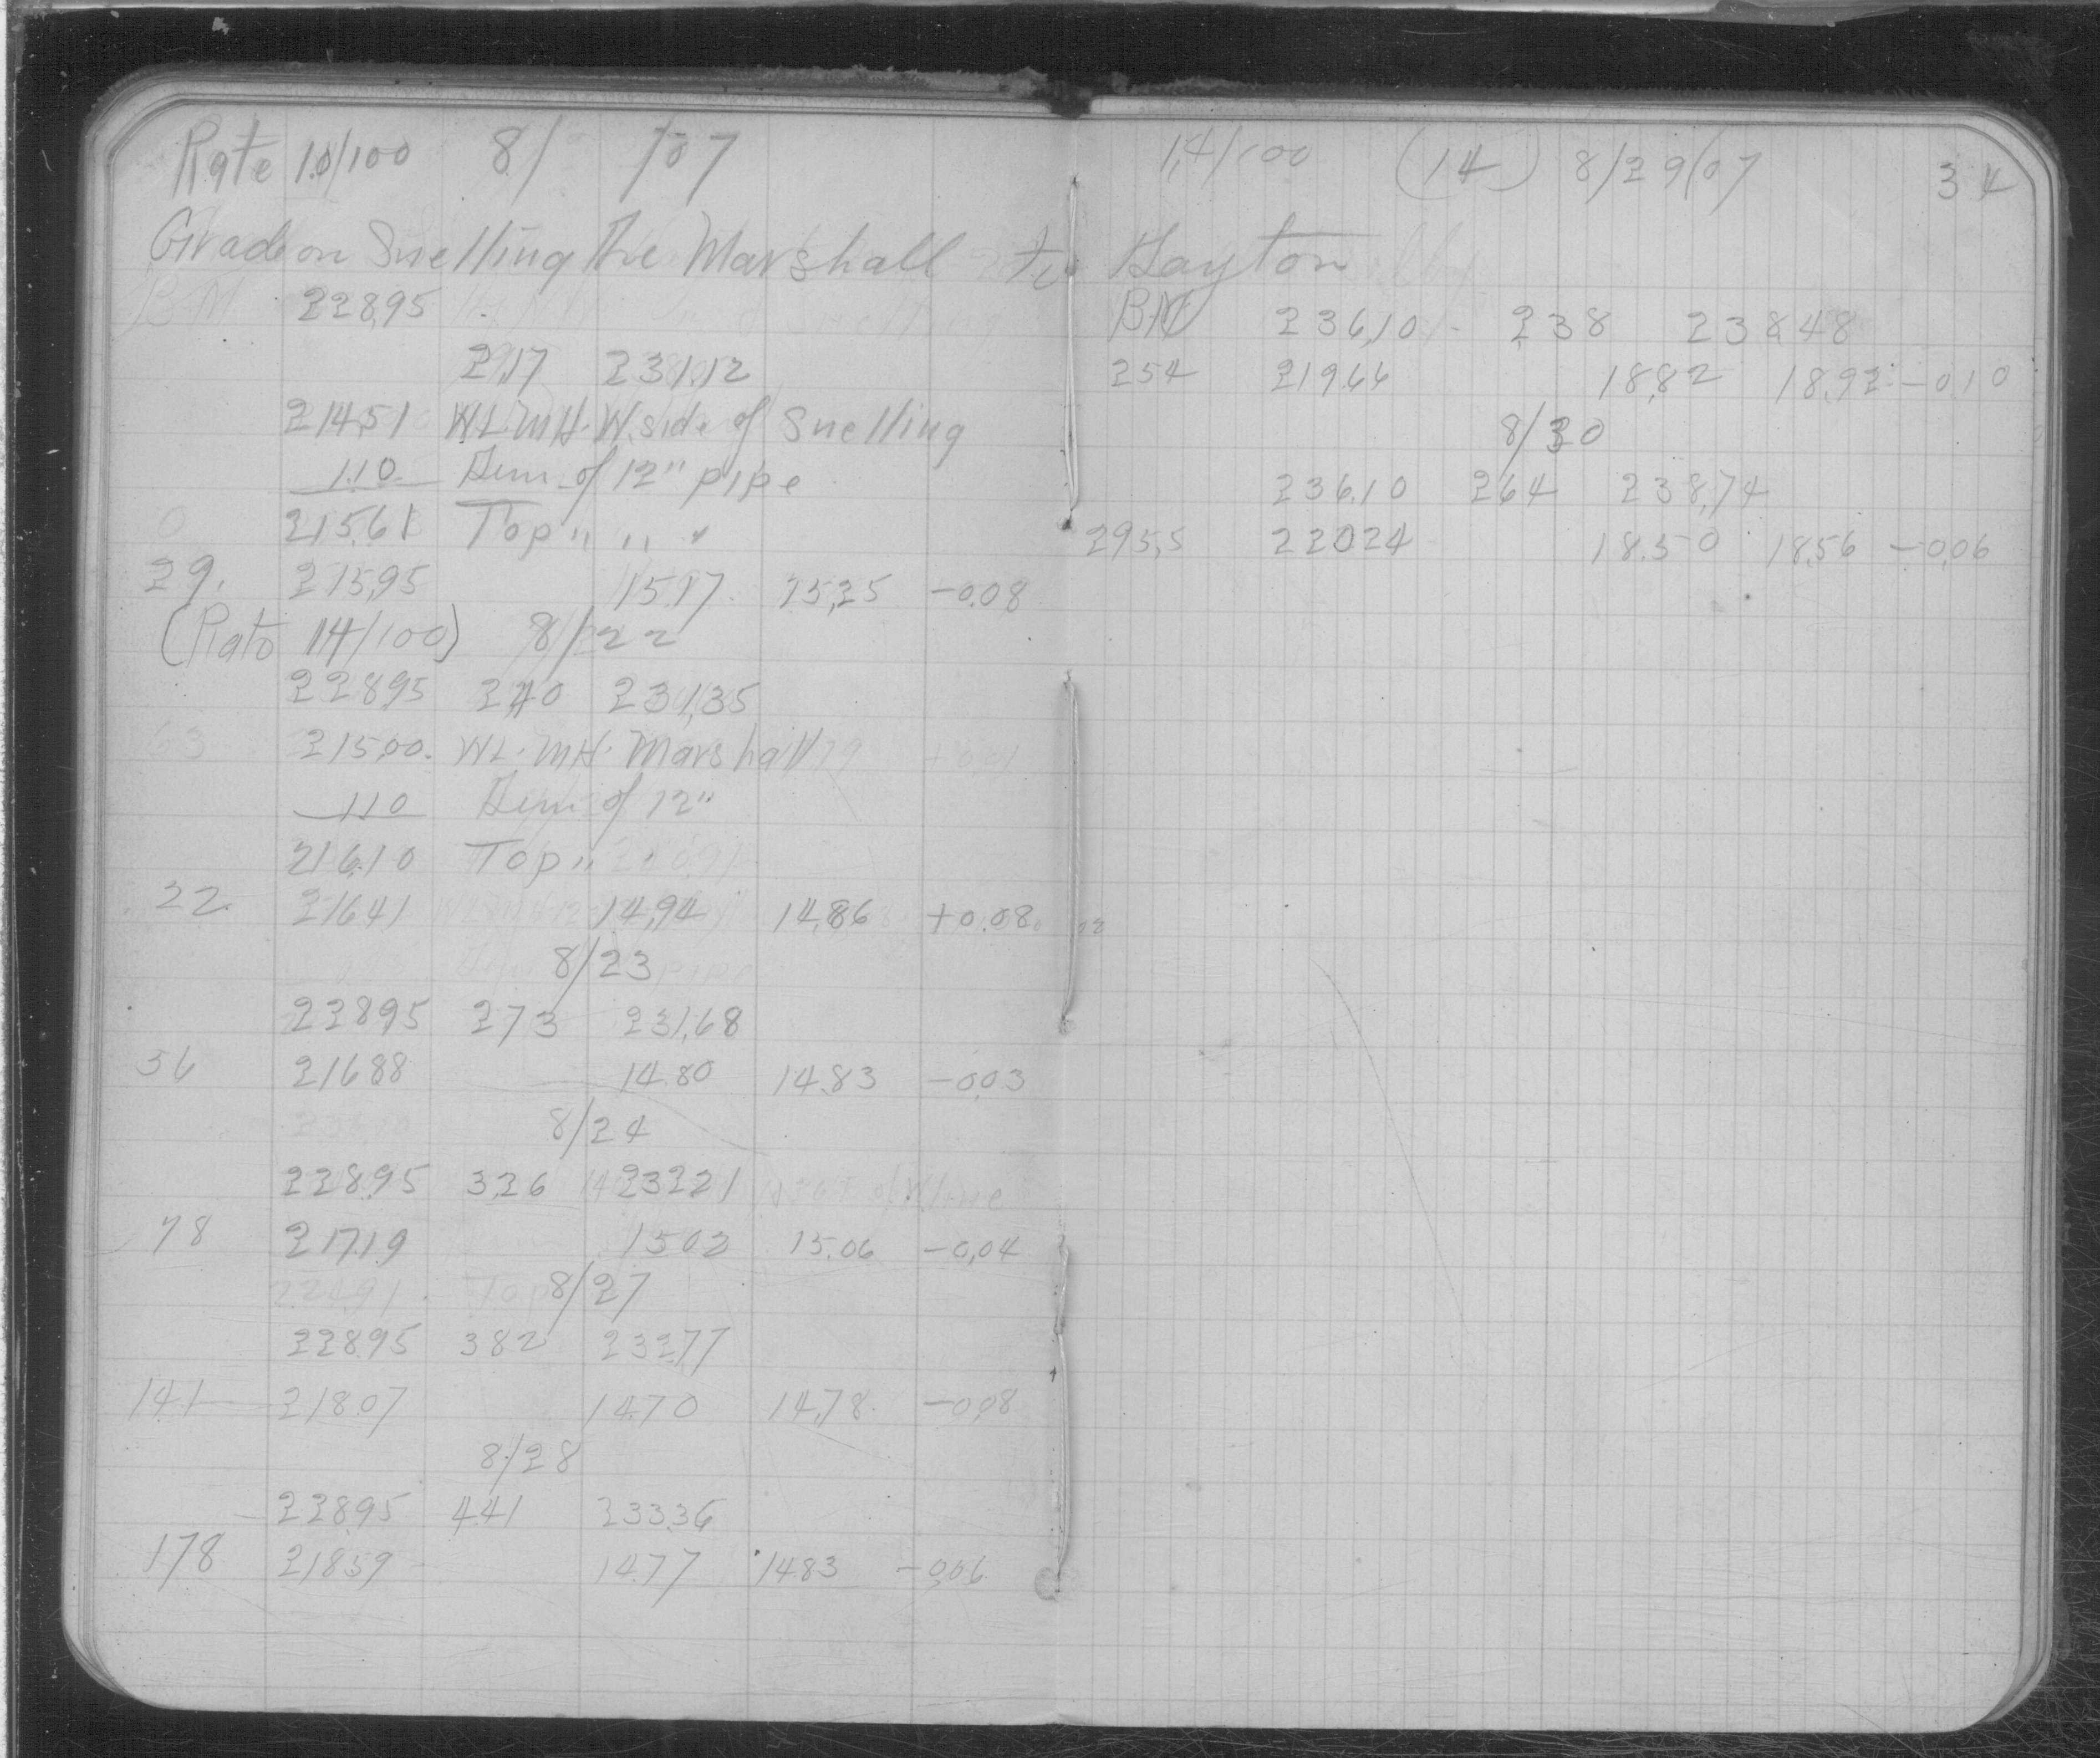 Rate 1.0/100 8/ /07
Grade on Snelling Ave Marshall to Dayton
BM 228.95
2.17 231.12
214.51 WL. MH. W. side of Snelling
1.10 Dim of 12" pipe
0 215.61 Top " " "
29. 215.95 15.17 15.25 -0.08
(Rate 1.4/100) 8/22
228.95 2.40 231.35
215.00 WL. MH. Marshall
1.10 Dim of 12"
216.10 Top "
22. 216.41 14.94 14.86 +0.08
8/23
228.95 2.73 231.68
56 216.88 14.80 14.83 -0.03
8/24
228.95 3.26 232.21
78 217.19 15.02 15.06 -0.04
8/27
228.95 3.82 232.77
141 218.07 14.70 14.78 -0.08
8/28
228.95 4.41 233.36
178 218.59 14.77 14.83 -0.06
1.4/100 (14) 8/29/07 34
BM 236.10 2.38 238.48
254 219.66 18.82 18.92 -0.10
8/30
236.10 2.64 238.74
295.5 220.24 18.50 18.56 -0.06